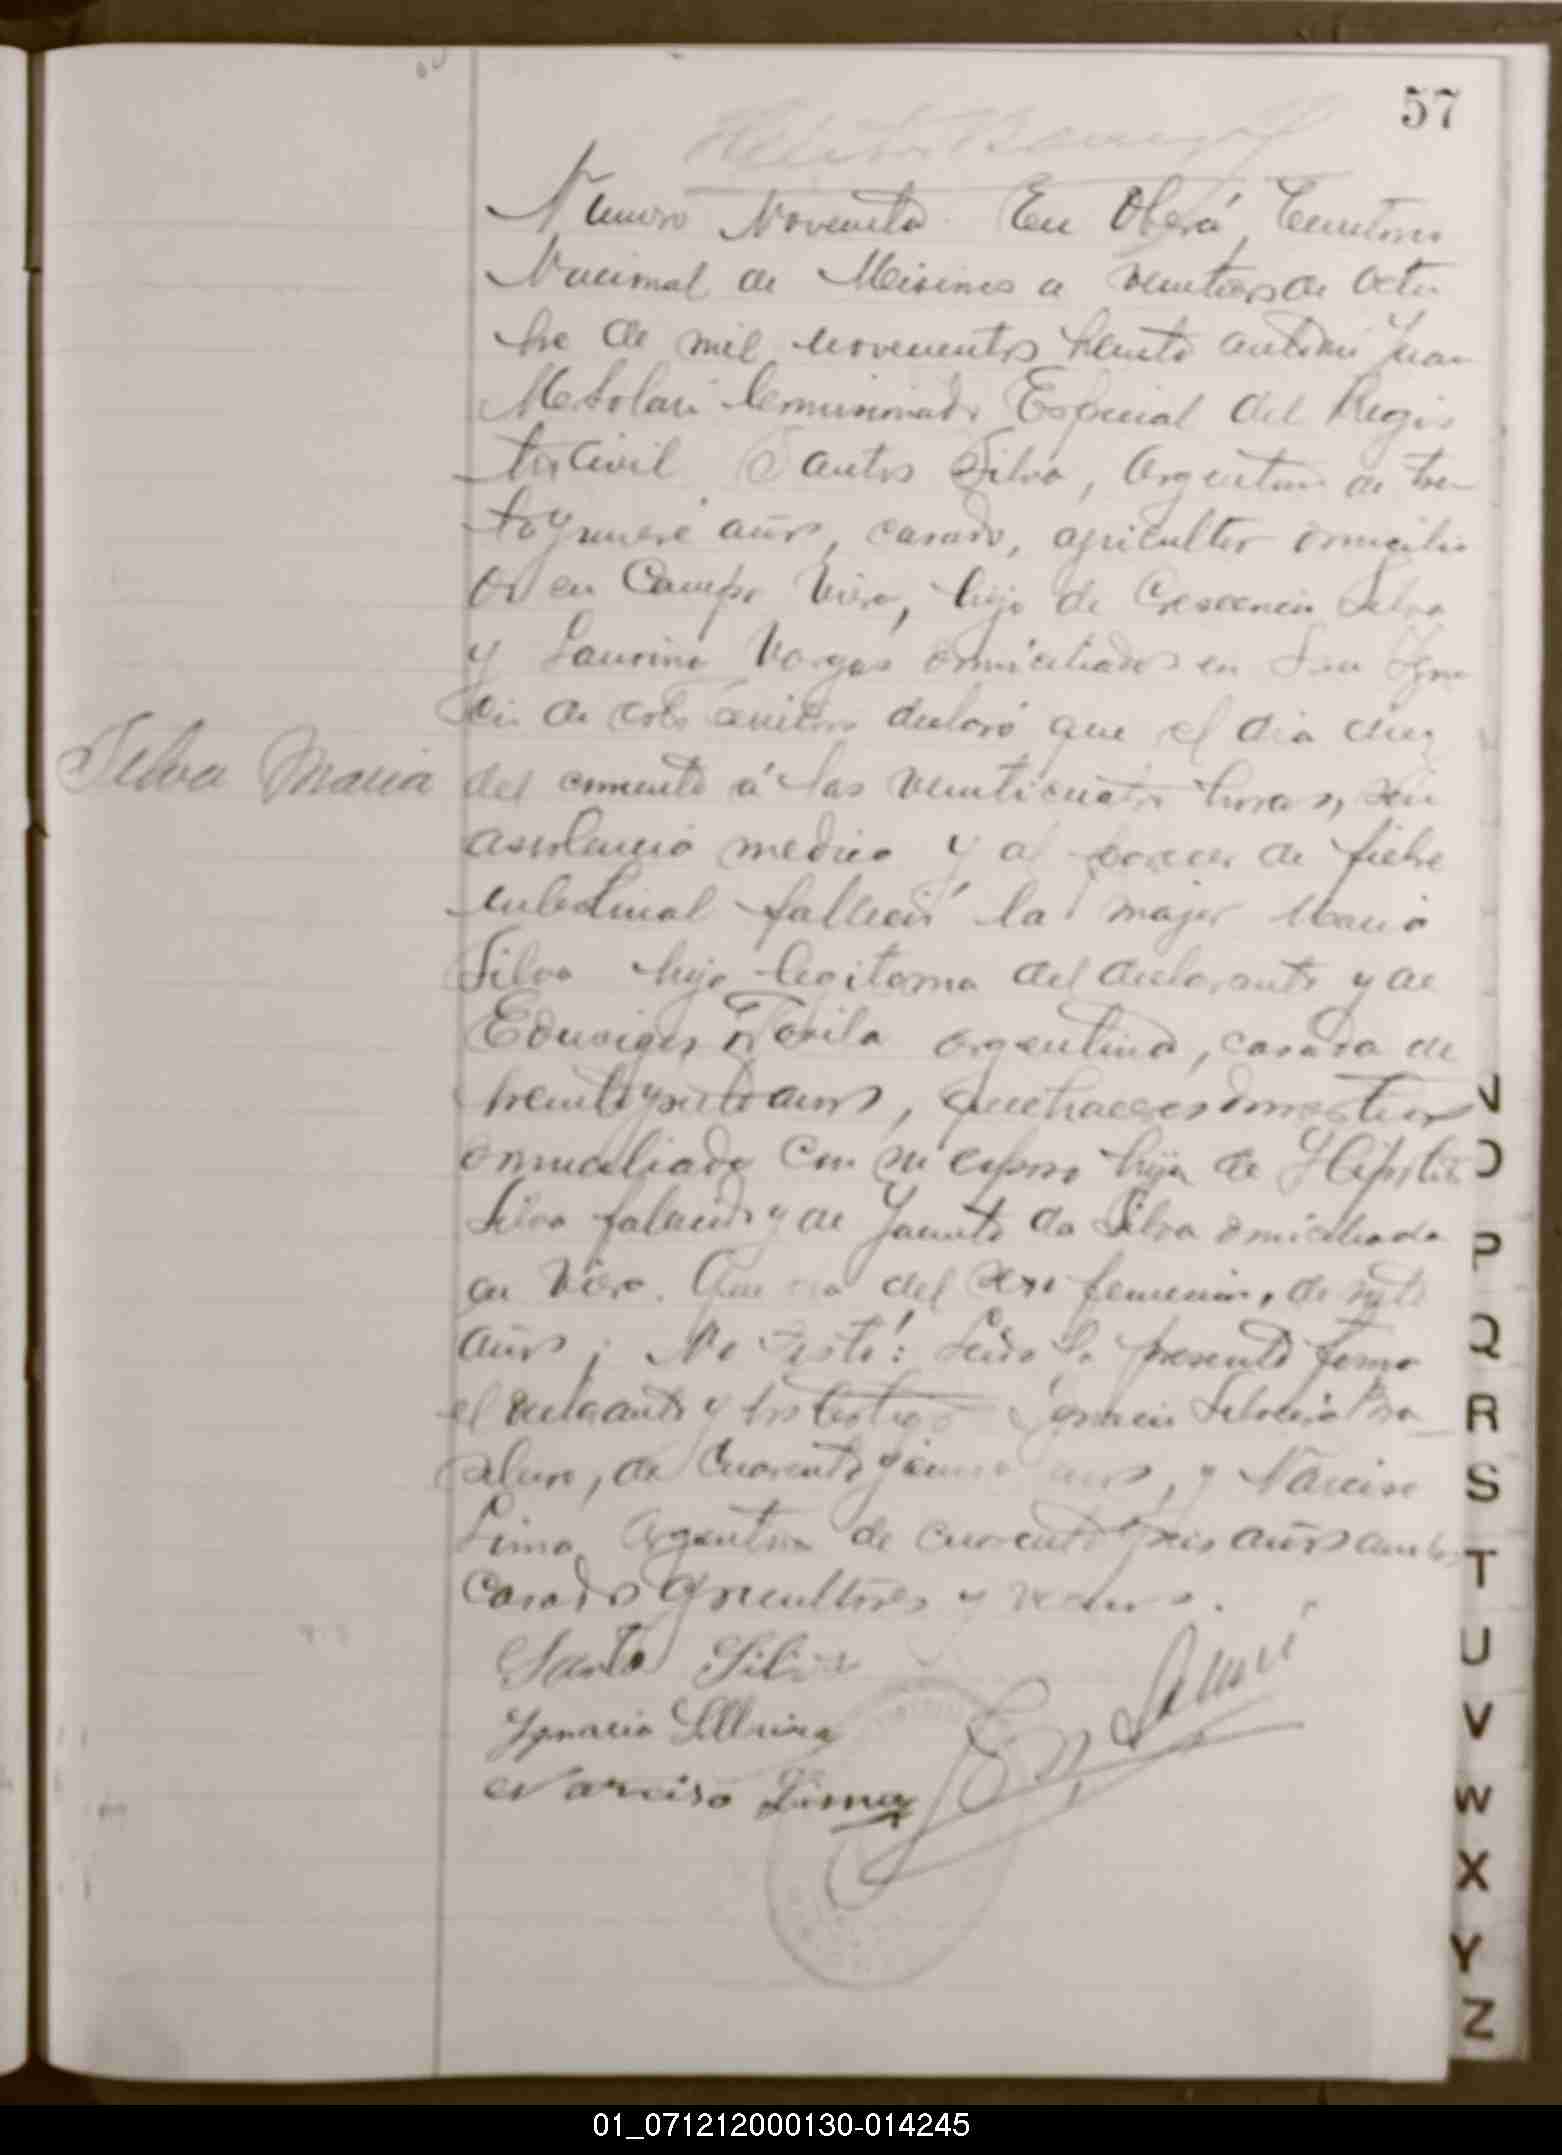 57
Numero Noventa. En Oberá, Territorio
Nacional de Misiones a veintitres de Octu
bre de mil novecientos treinta ante mi Juan
M. Solari Comisionado Especial del Regis
tro Civil Santos Silva, Argentino de trein
ta y nueve años, casado, agricultor domicilia
do en Campo Viera, hijo de Crescencio Silva
y Laurina Vargas domiciliados en San Igna
cio de este declaró que el dia diez
Silva Maria
del corriente á las veinticuatro horas, sin
asistencia medica y al parecer de fiebre
intestinal falleció la mujer Maria
Silva hija legitima del declarante y de
Eduviges argentina, casada de
treinta y siete años, quehaceres domesticos
domiciliada con su esposo hija de
Silva fallecido y de Jacinta da Silva domiciliada
en Viera. Que era del sexo femenino, de siete
años; No testó: Leida la presente firma
el declarante y los testigos Ignacio Silveira Bra
silero, de cuarenta y cinco años, y Narciso
Lima Argentino de cuarenta y seis años ambos
casados agricultores y vecinos.
Santo Silva
Ignacio
Narciso Lima
Solari
N
O
P
Q
R
S
T
U
V
W
X
Y
Z
01_071212000130-014245